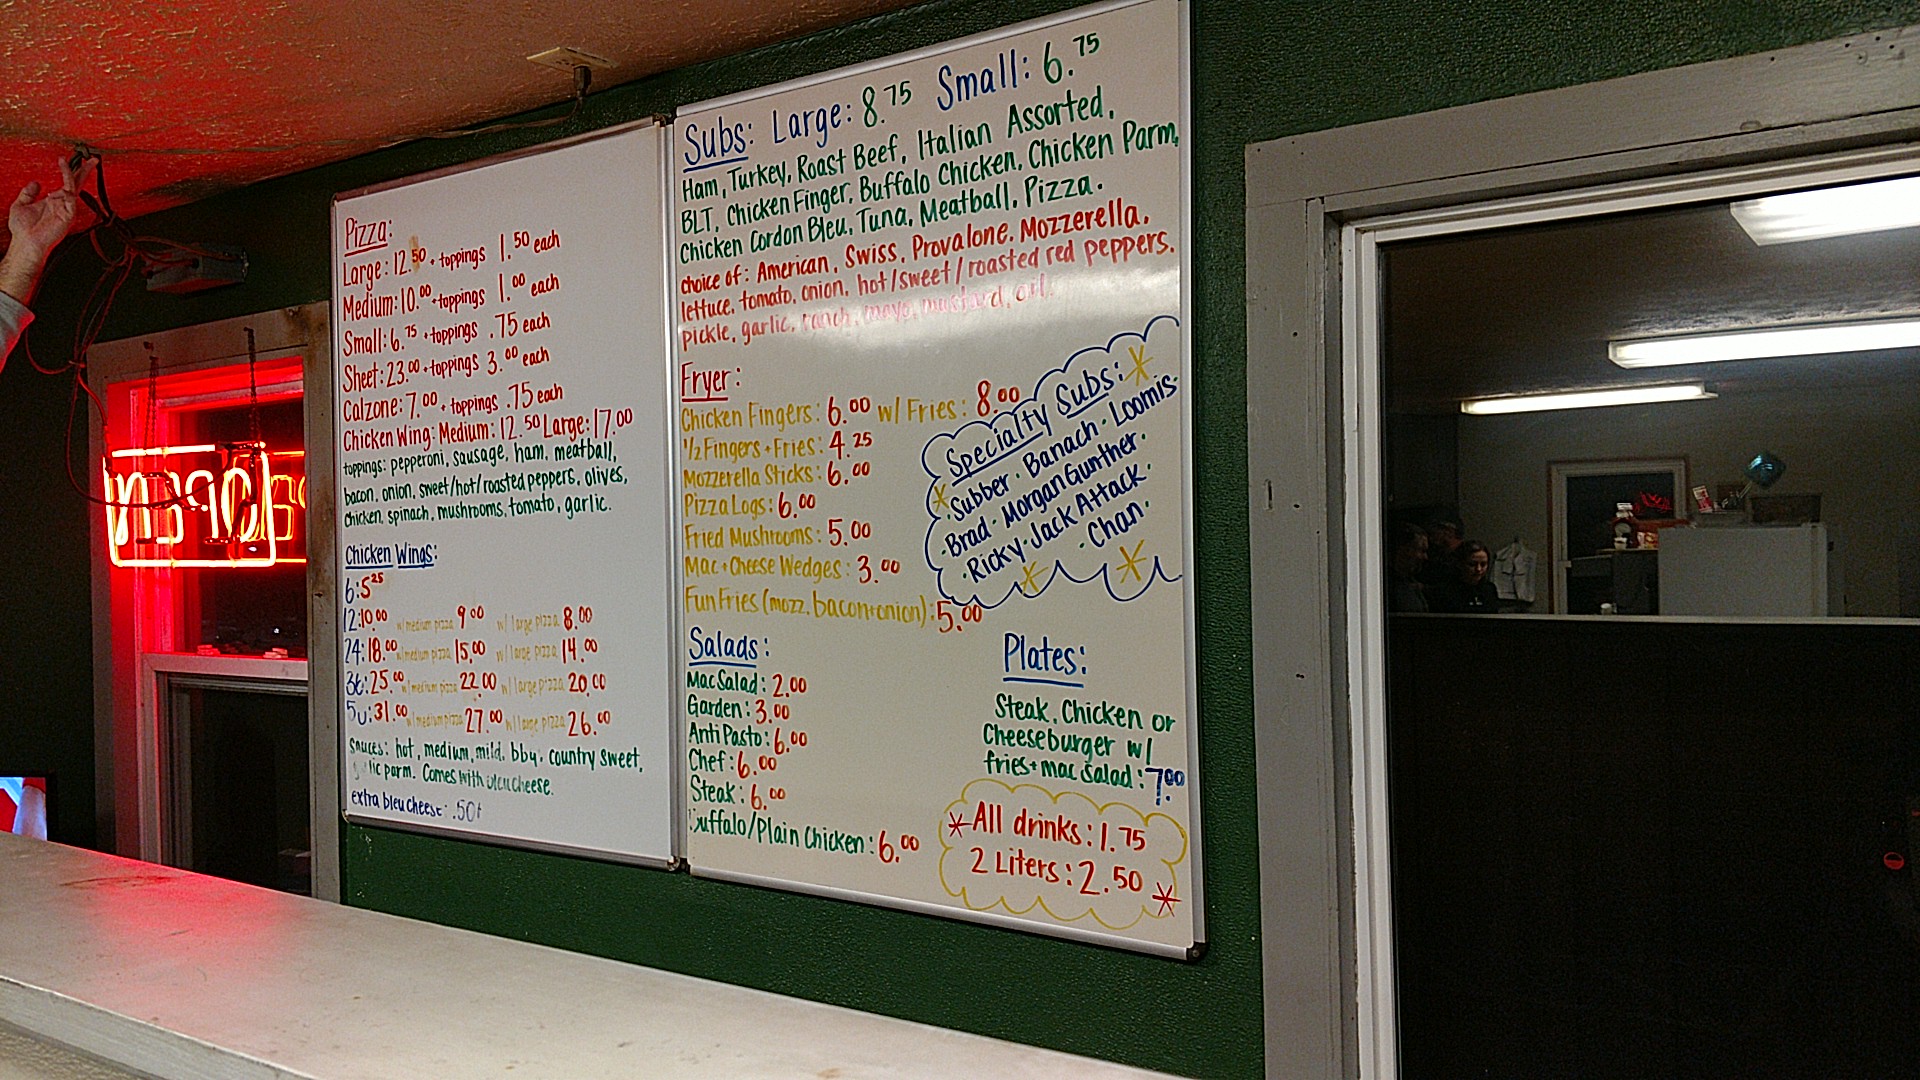 Pizza:
Large: 12.50 + toppings 1.50 each
Medium: 10.00 + toppings 1.00 each
Small: 6.75 + toppings .75 each
Sheet: 23.00 + toppings 3.00 each
Calzone: 7.00 + toppings .75 each
Chicken Wing: Medium: 12.50 Large: 17.00
toppings: pepperoni, sausage, ham, meatball,
bacon, onion, sweet/hot/roasted peppers, olives,
chicken, spinach, mushrooms, tomato, garlic.
Chicken Wings:
6: 5.25
12: 10.00 w/ medium pizza 9.00 w/ large pizza 8.00
24: 18.00 w/ medium pizza 15.00 w/ large pizza 14.00
36: 25.00 w/ medium pizza 22.00 w/ large pizza 20.00
50: 31.00 w/ medium pizza 27.00 w/ large pizza 26.00
Sauces: hot, medium, mild, bbq, country sweet,
parm. Comes with bleu cheese.
extra bleu cheese: .50¢
Subs: Large: 8.75 Small: 6.75
Ham, Turkey, Roast Beef, Italian Assorted,
BLT, Chicken Finger, Buffalo Chicken, Chicken Parm,
Chicken Cordon Bleu, Tuna, Meatball, Pizza.
choice of: American, Swiss, Provalone, Mozzerella,
lettuce, tomato, onion, hot/sweet/roasted red peppers.
pickle, garlic, ranch, mayo, mustard, oil.
Fryer:
Chicken Fingers: 6.00 w/ Fries: 8.00
1/2 Fingers + Fries: 4.25
Mozzerella Sticks: 6.00
Pizza Logs: 6.00
Fried Mushrooms: 5.00
Mac + Cheese Wedges: 3.00
Fun Fries (mozz, bacon + onion): 5.00
Specialty Subs:
· Subber · Banach · Loomis
· Brad · Morgan Gunther ·
· Ricky · Jack Attack ·
· Chan ·
Salads:
Mac Salad: 2.00
Garden: 3.00
Anti Pasto: 6.00
Chef: 6.00
Steak: 6.00
Buffalo/Plain Chicken: 6.00
Plates:
Steak, Chicken or
Cheeseburger w/
fries + mac salad: 7.00
*All drinks: 1.75
2 Liters: 2.50 *
OPEN